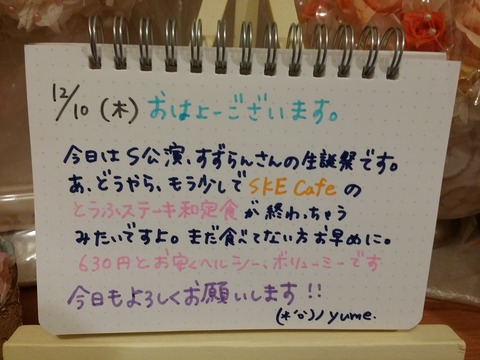 12/10 (木) おはよーございます。
今日はS公演、すずらんさんの生誕祭です。
あ、どうやら、もう少しで SKE Cafe の
とうふステーキ和定食が終わっちゃう
みたいですよ。まだ食べてない方お早めに。
630円とお安くヘルシー、ボリューミーです
今日もよろしくお願いします!!
(*'o')ノ yume.